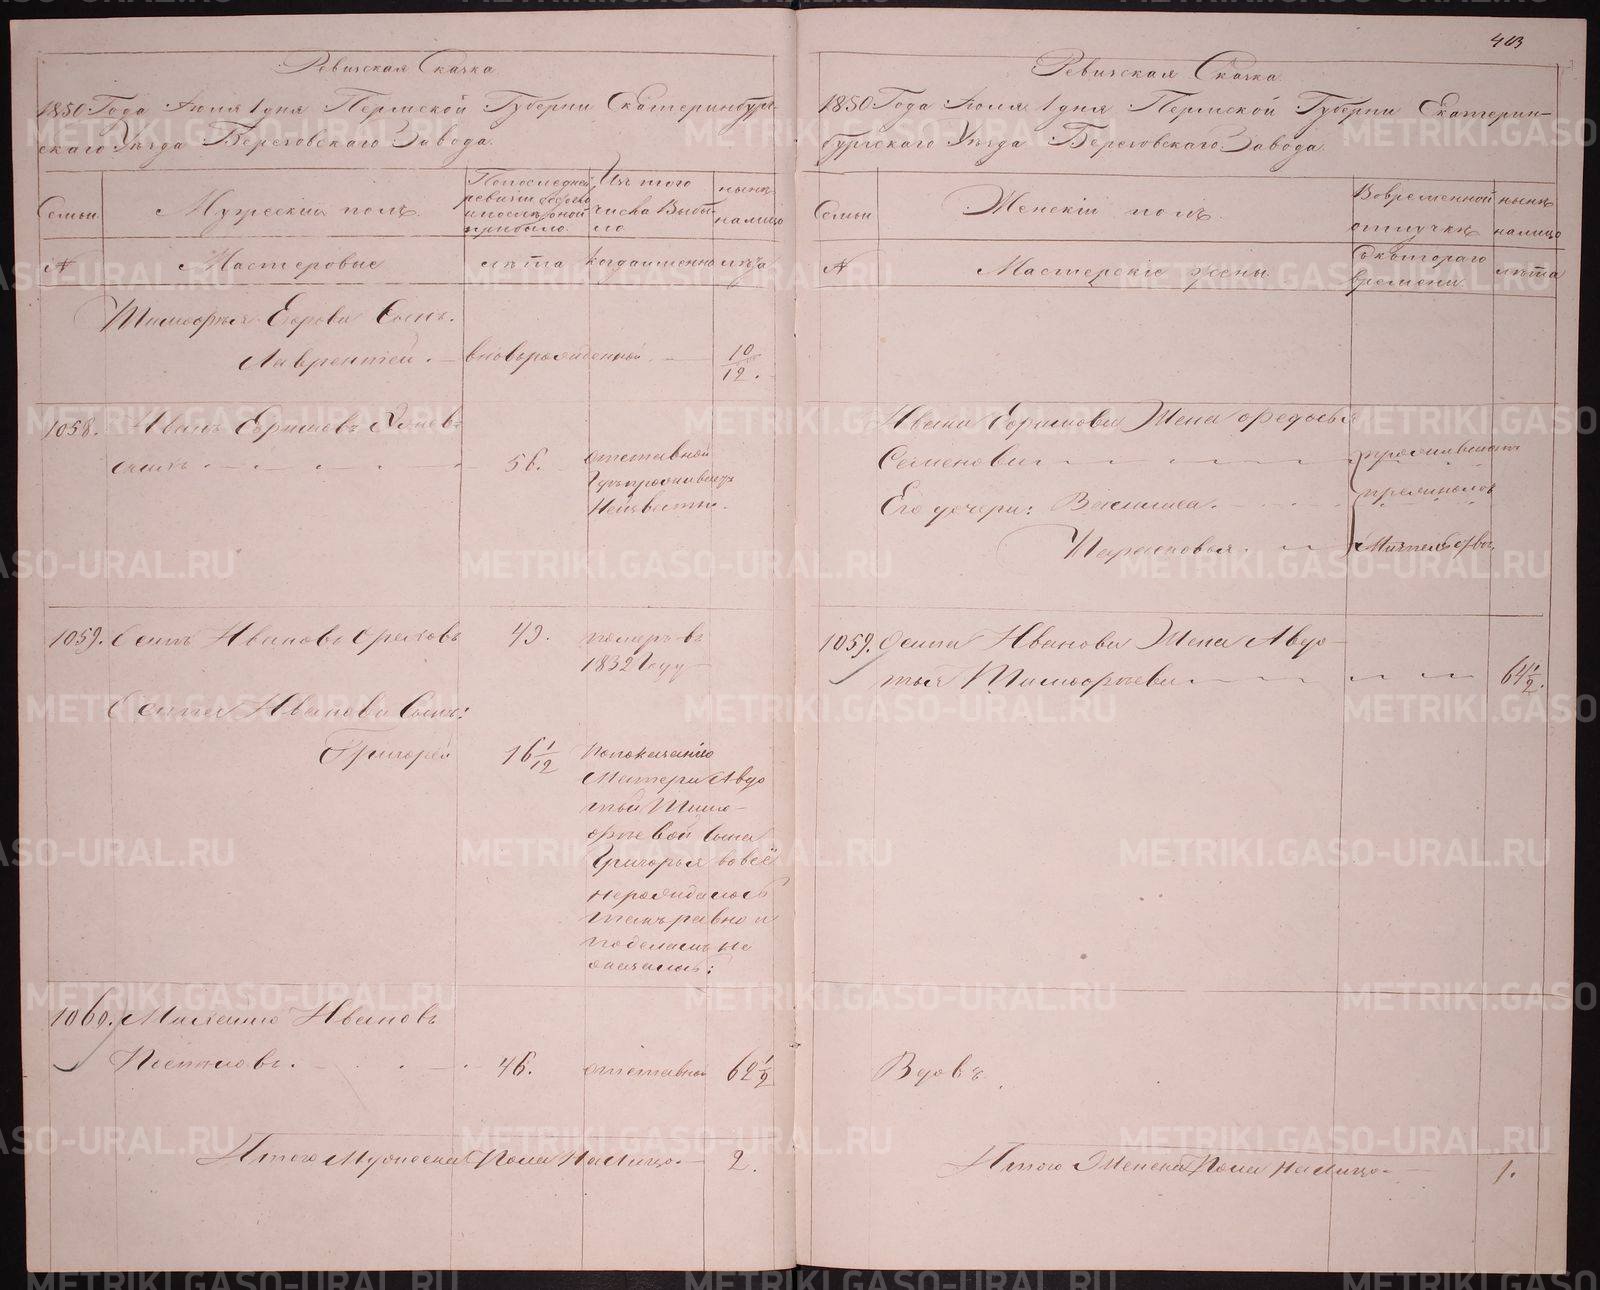 403
Ревизская Сказка
1850 Года Июля 1 дня Пермской Губерни Екатеринбург-
скаго Уѣзда Березовскаго Завода.
Семьи
Мужеский полъ.
По последней ревизии состояло и после оной прибыло
Изъ того числа Выбы-ло
нынѣ налицо
№
Мастеровые
лѣта
когда именно
лѣта
Тимофѣя Егорова Сынъ.
Лаврентей. — вновьрожденный. — 10/12.
1058. Иванъ Ефимовъ
56. отставной
Неизвестно.
1059. Осипъ Ивановъ
49. померъ въ
1832 Году
Осипа Иванова Сынъ:
Григорей 16 1/12 По показанию
Матери Авдо
тьи Тимо-
фѣевой Сына
Григорья вовсё
нерождалось
такъ равно и
поделамъ не
оказалось:
1060. Ивановъ
46. отставной 62 1/2
Итого Мужеска Пола На Лицо — 2.
Ревизская Сказка
1850 Года Июля 1 дня Пермской Губерни Екатерин-
бургскаго Уѣзда Березовскаго Завода.
Семьи
Женскій полъ.
Вовременной отлучкѣ
нынѣ налицо
№
Мастерскіе жены.
Съ котораго времени
лѣта
Ивана Ефимова Жена Федосья
Семенова
Его дочери: Василиса.
Парасковья.
1059. Осипа Иванова Жена Авдо-
тья Тимофѣева 64 1/2.
Вдовъ
Итого Женска Пола На Лицо — 1.
METRIKI.GASO-URAL.RU